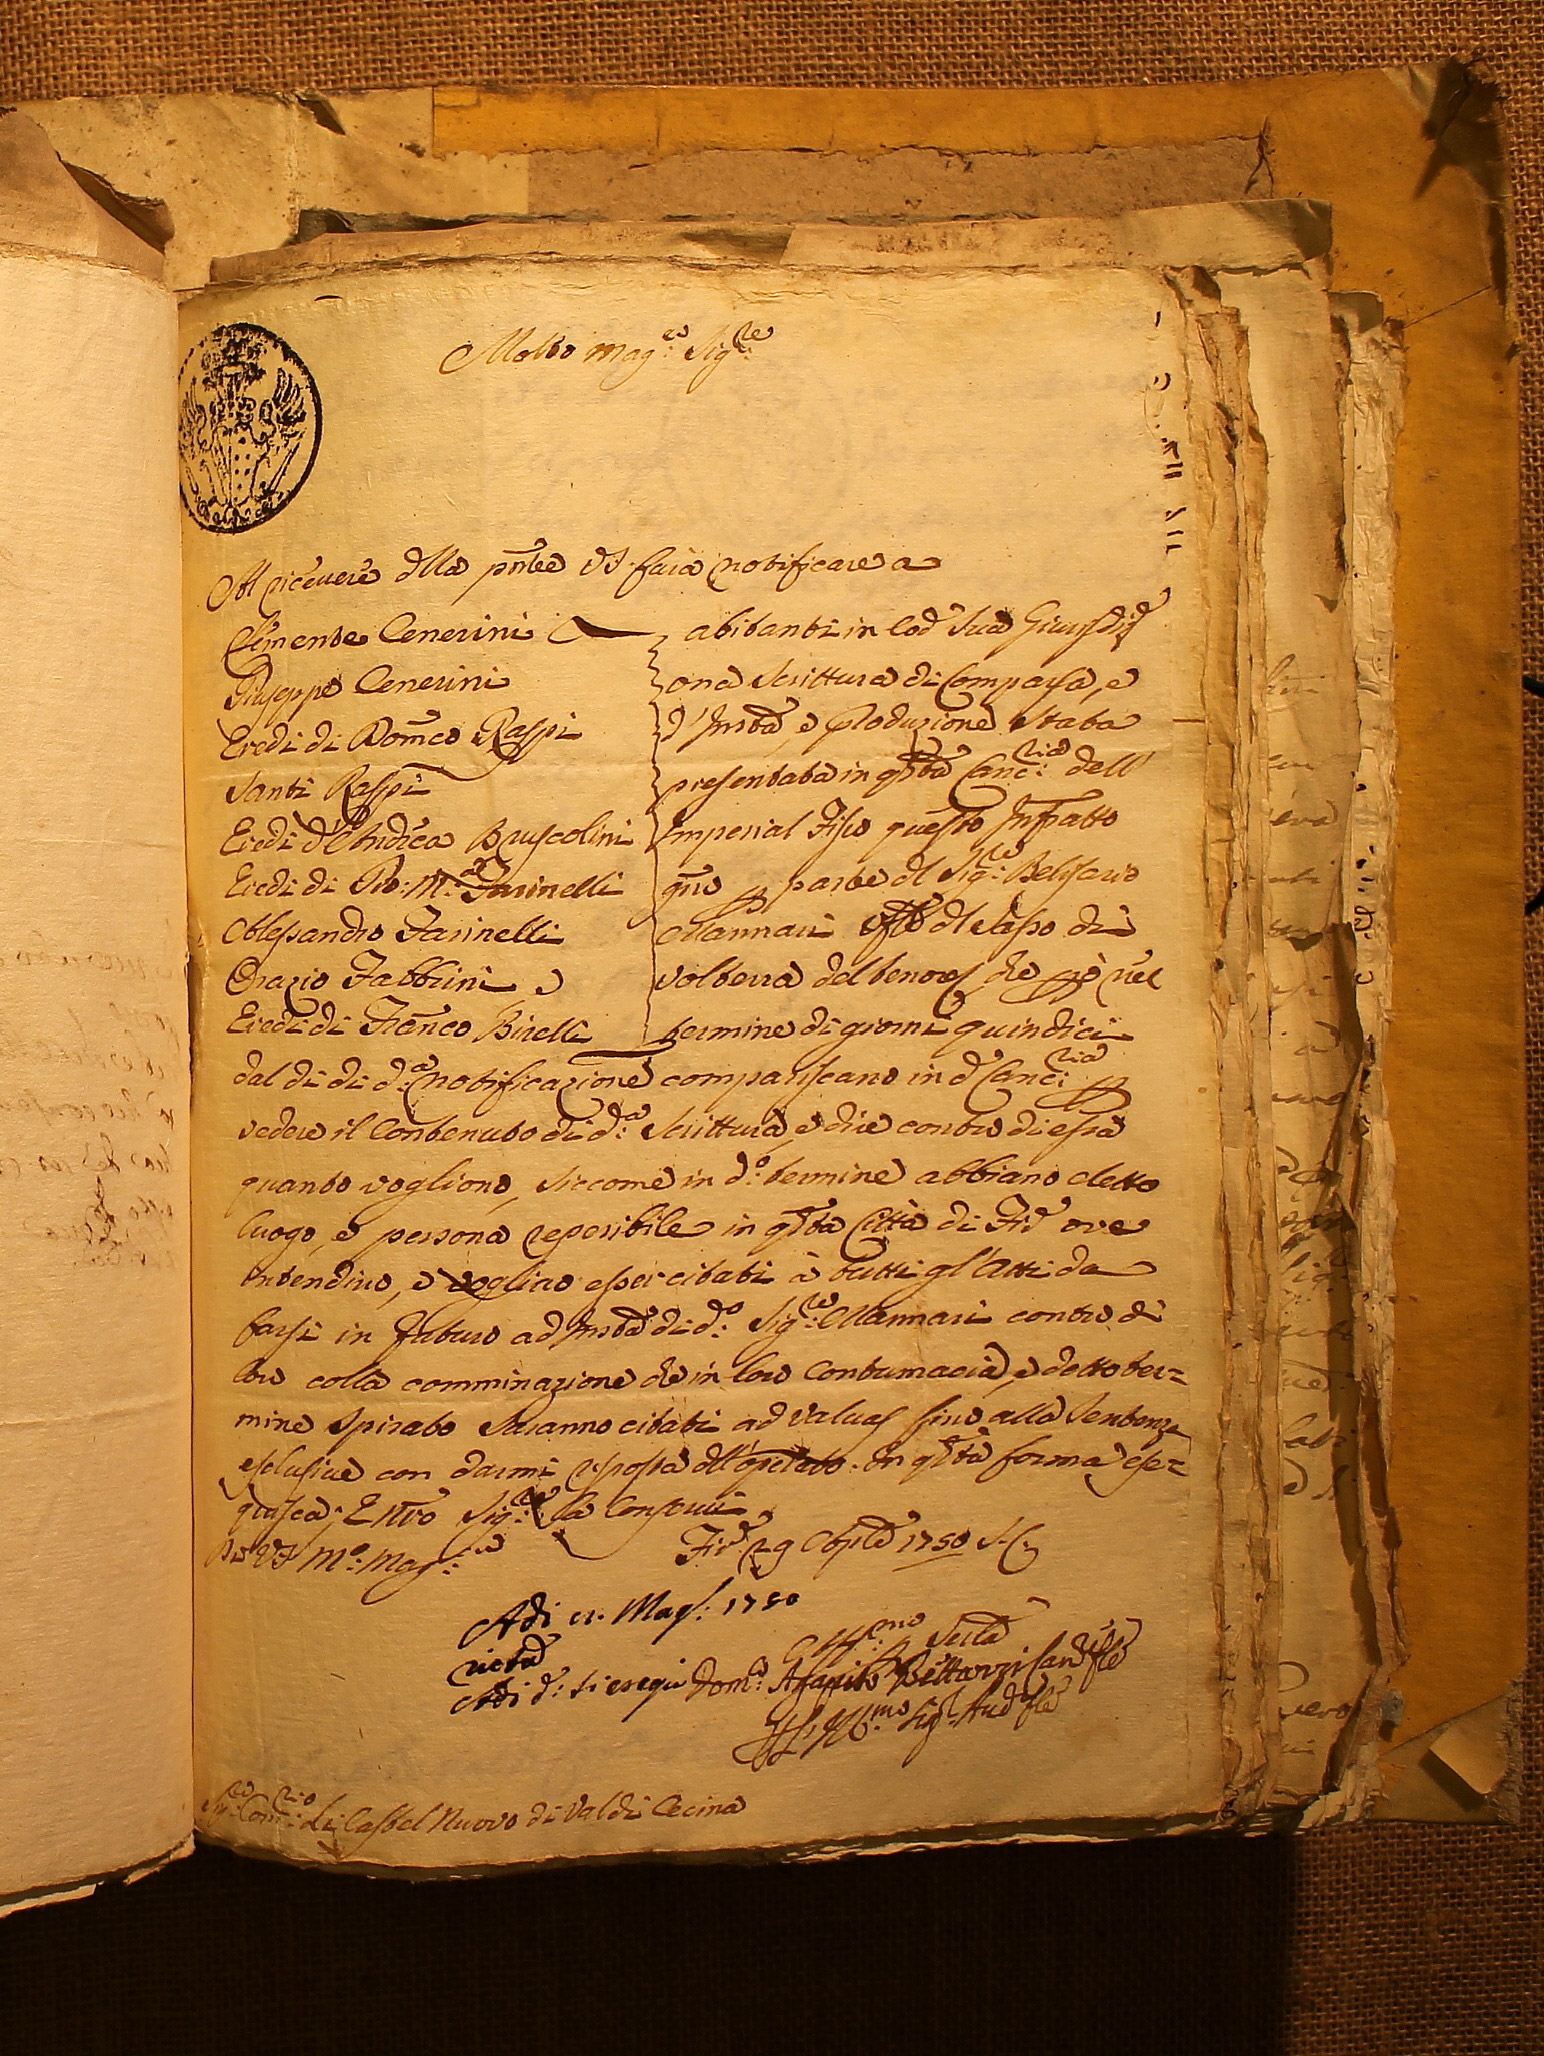 Molto Mag.co Sig.re
Al ricevere dlla pñte VS. farà notificare a
Clemente Cenerini
Giuseppe Cenerini
Eredi di Dom̃co Raspi
Santi Raspi
Eredi d'Andrea Bruscolini
Eredi di Gio: M.a Farinelli
Alessandro Farinelli
Orazio Fabbrini e
Eredi di Franco Birelli
abitanti in cod Sua Giurisdiz
una Scrittura di Comparsa, e
d'Instã, e Produzione Stata
presentata in qsta Canc:ria dell'
Imperial Fisco questo Infratto
gno p parte dl Sig:re Belisario
Mannari dl Sasso di
Volterra del tenore, che nel
termine di giorni quindici
dal di di d:a notificazione compariscano in d Canc:ria p
vedere il Contenuto di d:a Scrittura, e dire contro di essa
quanto vogliono, siccome in d:o termine abbiano eletto
luogo, e persona reperibile in qsta Città di Fir ove
intendino, e vogliano esser citati à tutti gl'Atti da
farsi in futuro ad Instã di d:o Sig:re Mannari contro di
loro colla comminazione che in loro Contumacia, e detto ter=
mine spirato saranno citati ad Valvas fino alla Sentenza
esclusive con darmi risposta dll'operato. In qsta forma ese=
guisca; E Nro Sig:re la Conservi
Da VS M:o Mag:ca
Fir 29 Aple 1750 S.C.
Adi Mag: 1750
ricta
Adi d: si eseguì Dom:
Aff:mo
Agapito Bettazzi Can fle
Ill:mo Sig Aud fle
Sig:re Com:rio di Castel Nuovo di Val di Cecina